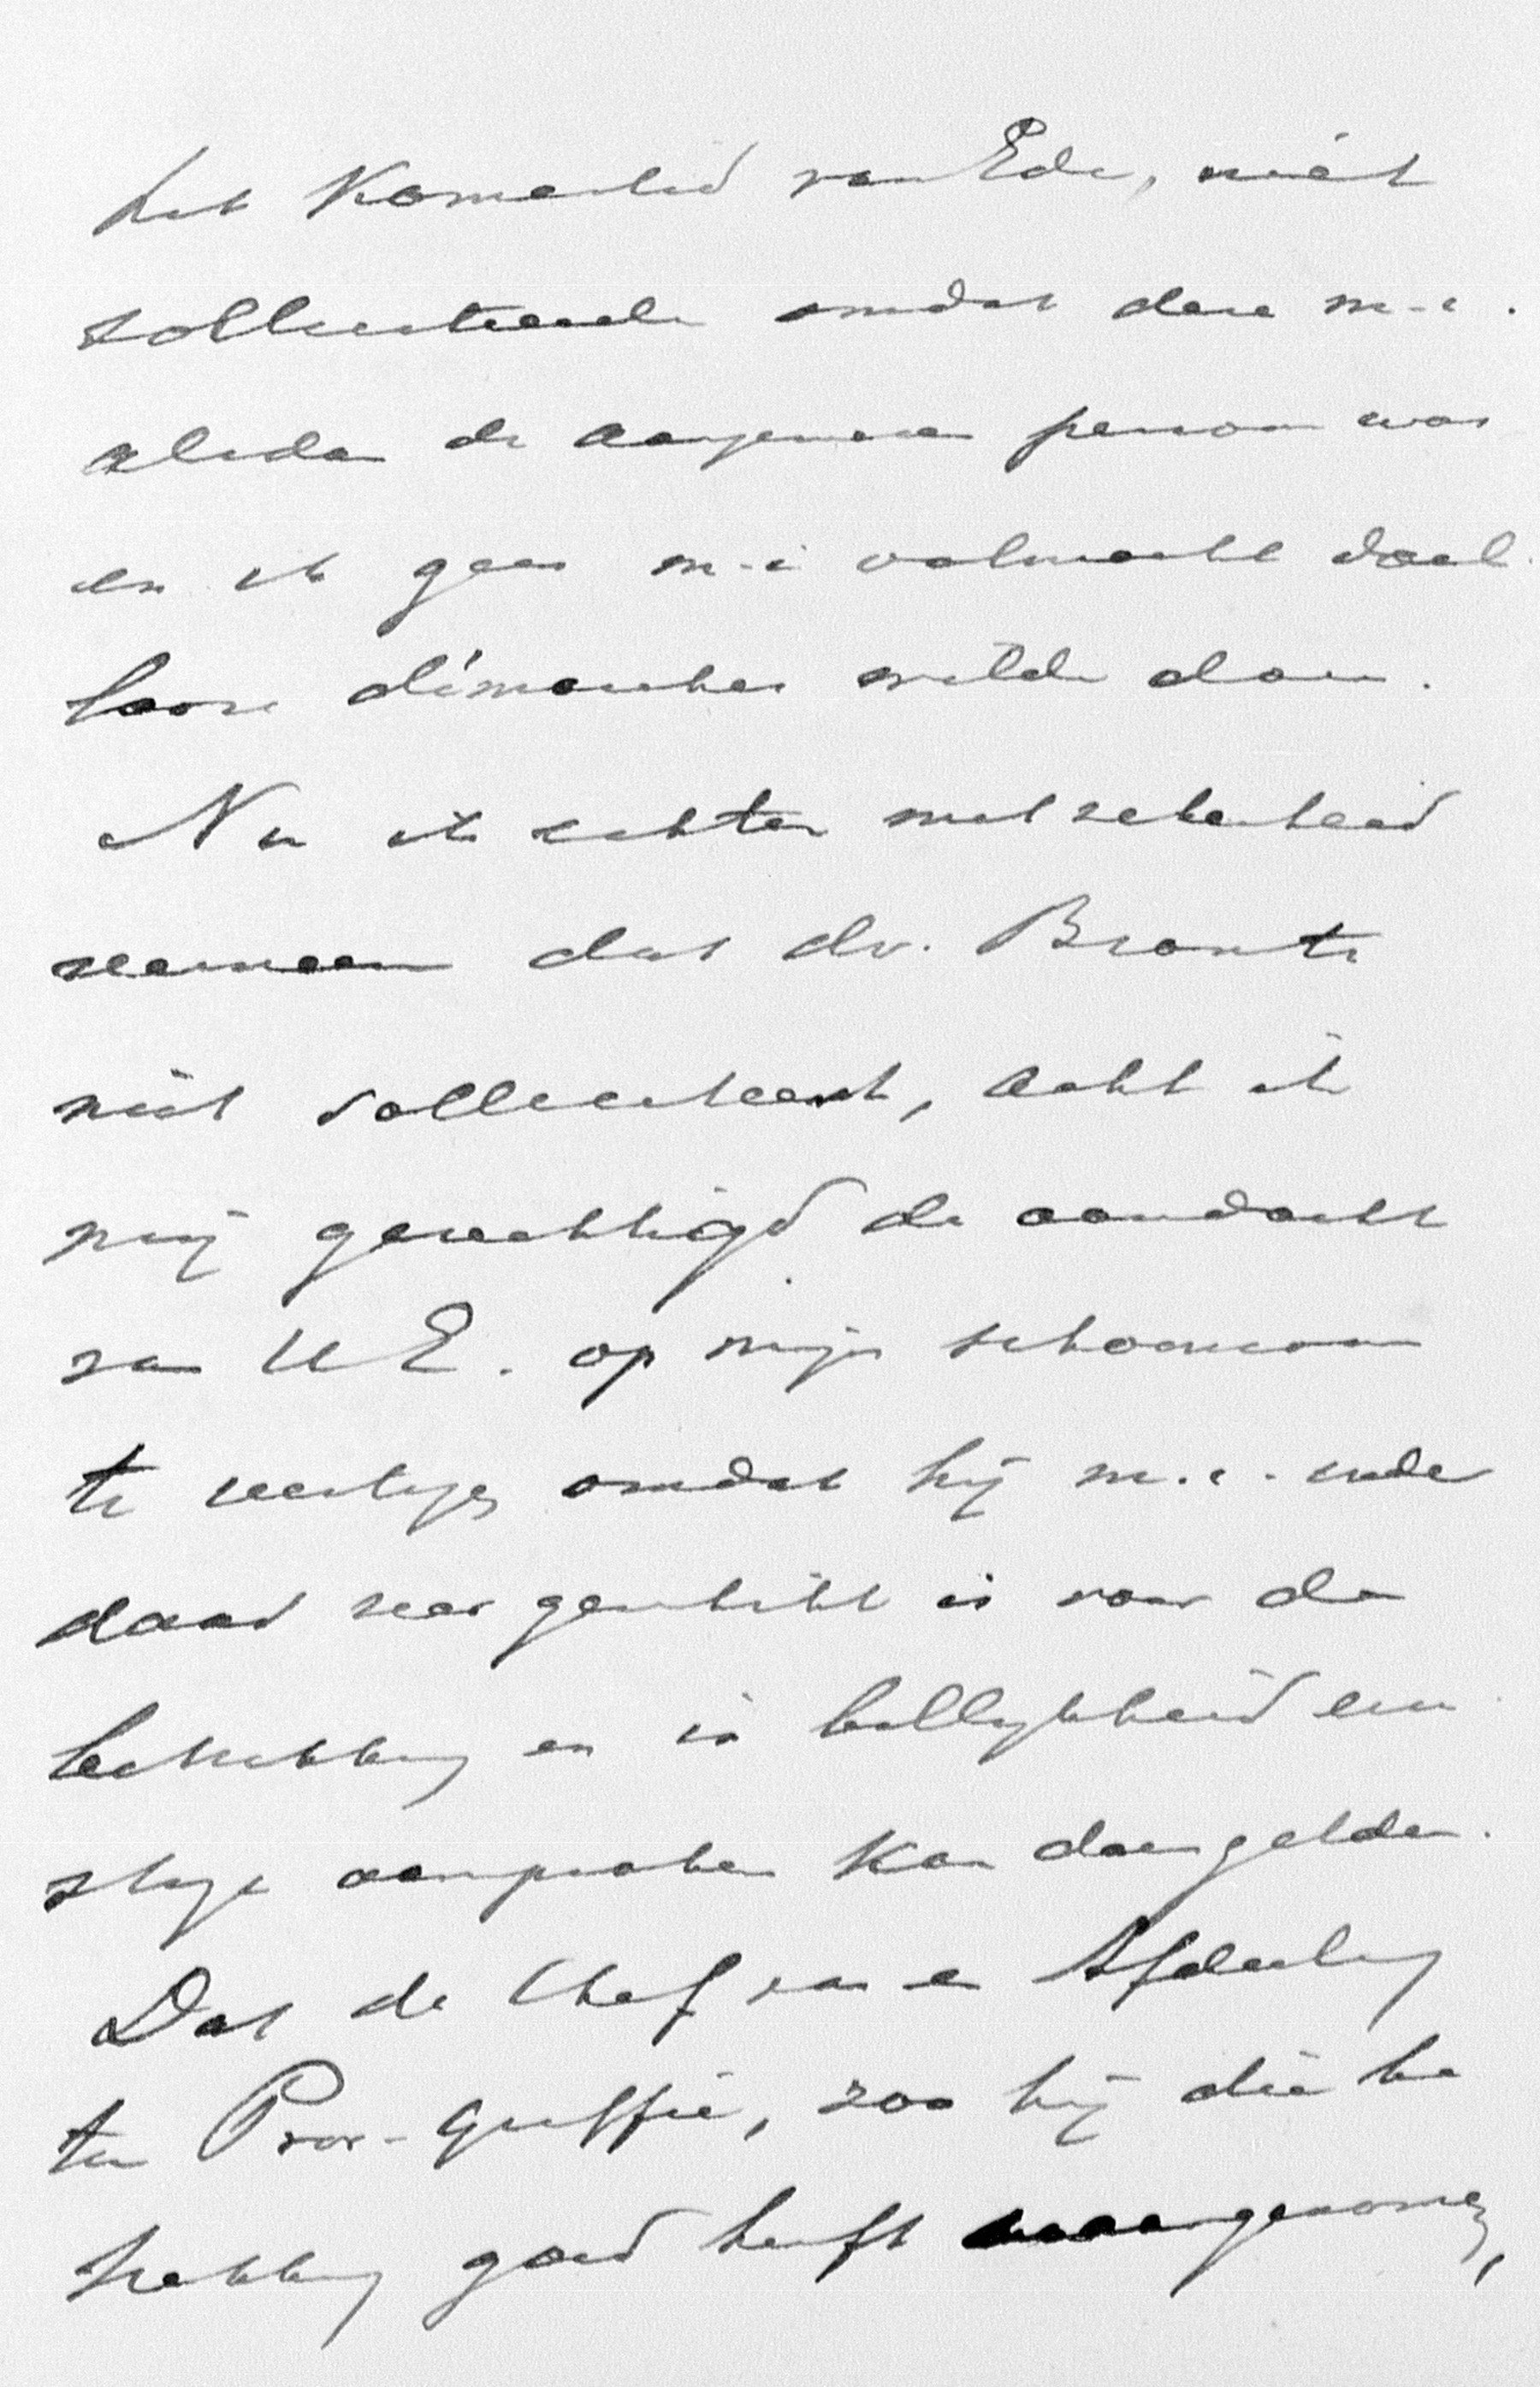 het Kamerlid van Ede, niet
solliciteerde omdat deze m.i.
alsdan de aangewezen persoon was
en ik geen m.i. volmaakt doel
looze démarches wilde doen.
Nu ik echter met zekerheid
verneem dat dr. Bronte
niet solliciteert, acht ik
mij gerechtigd de aandacht
van UE. op mijn schoonzoon
te vestigen omdat hij m.i. inder
daad zeer geschikt is voor de
betrekking en in billijkheid een
stige aanspraken kan doen gelden.
Dat de Chef van e Afdeeling
ter Prov. Griffie, zoo hij die be
trekking goed heeft waargenomen,